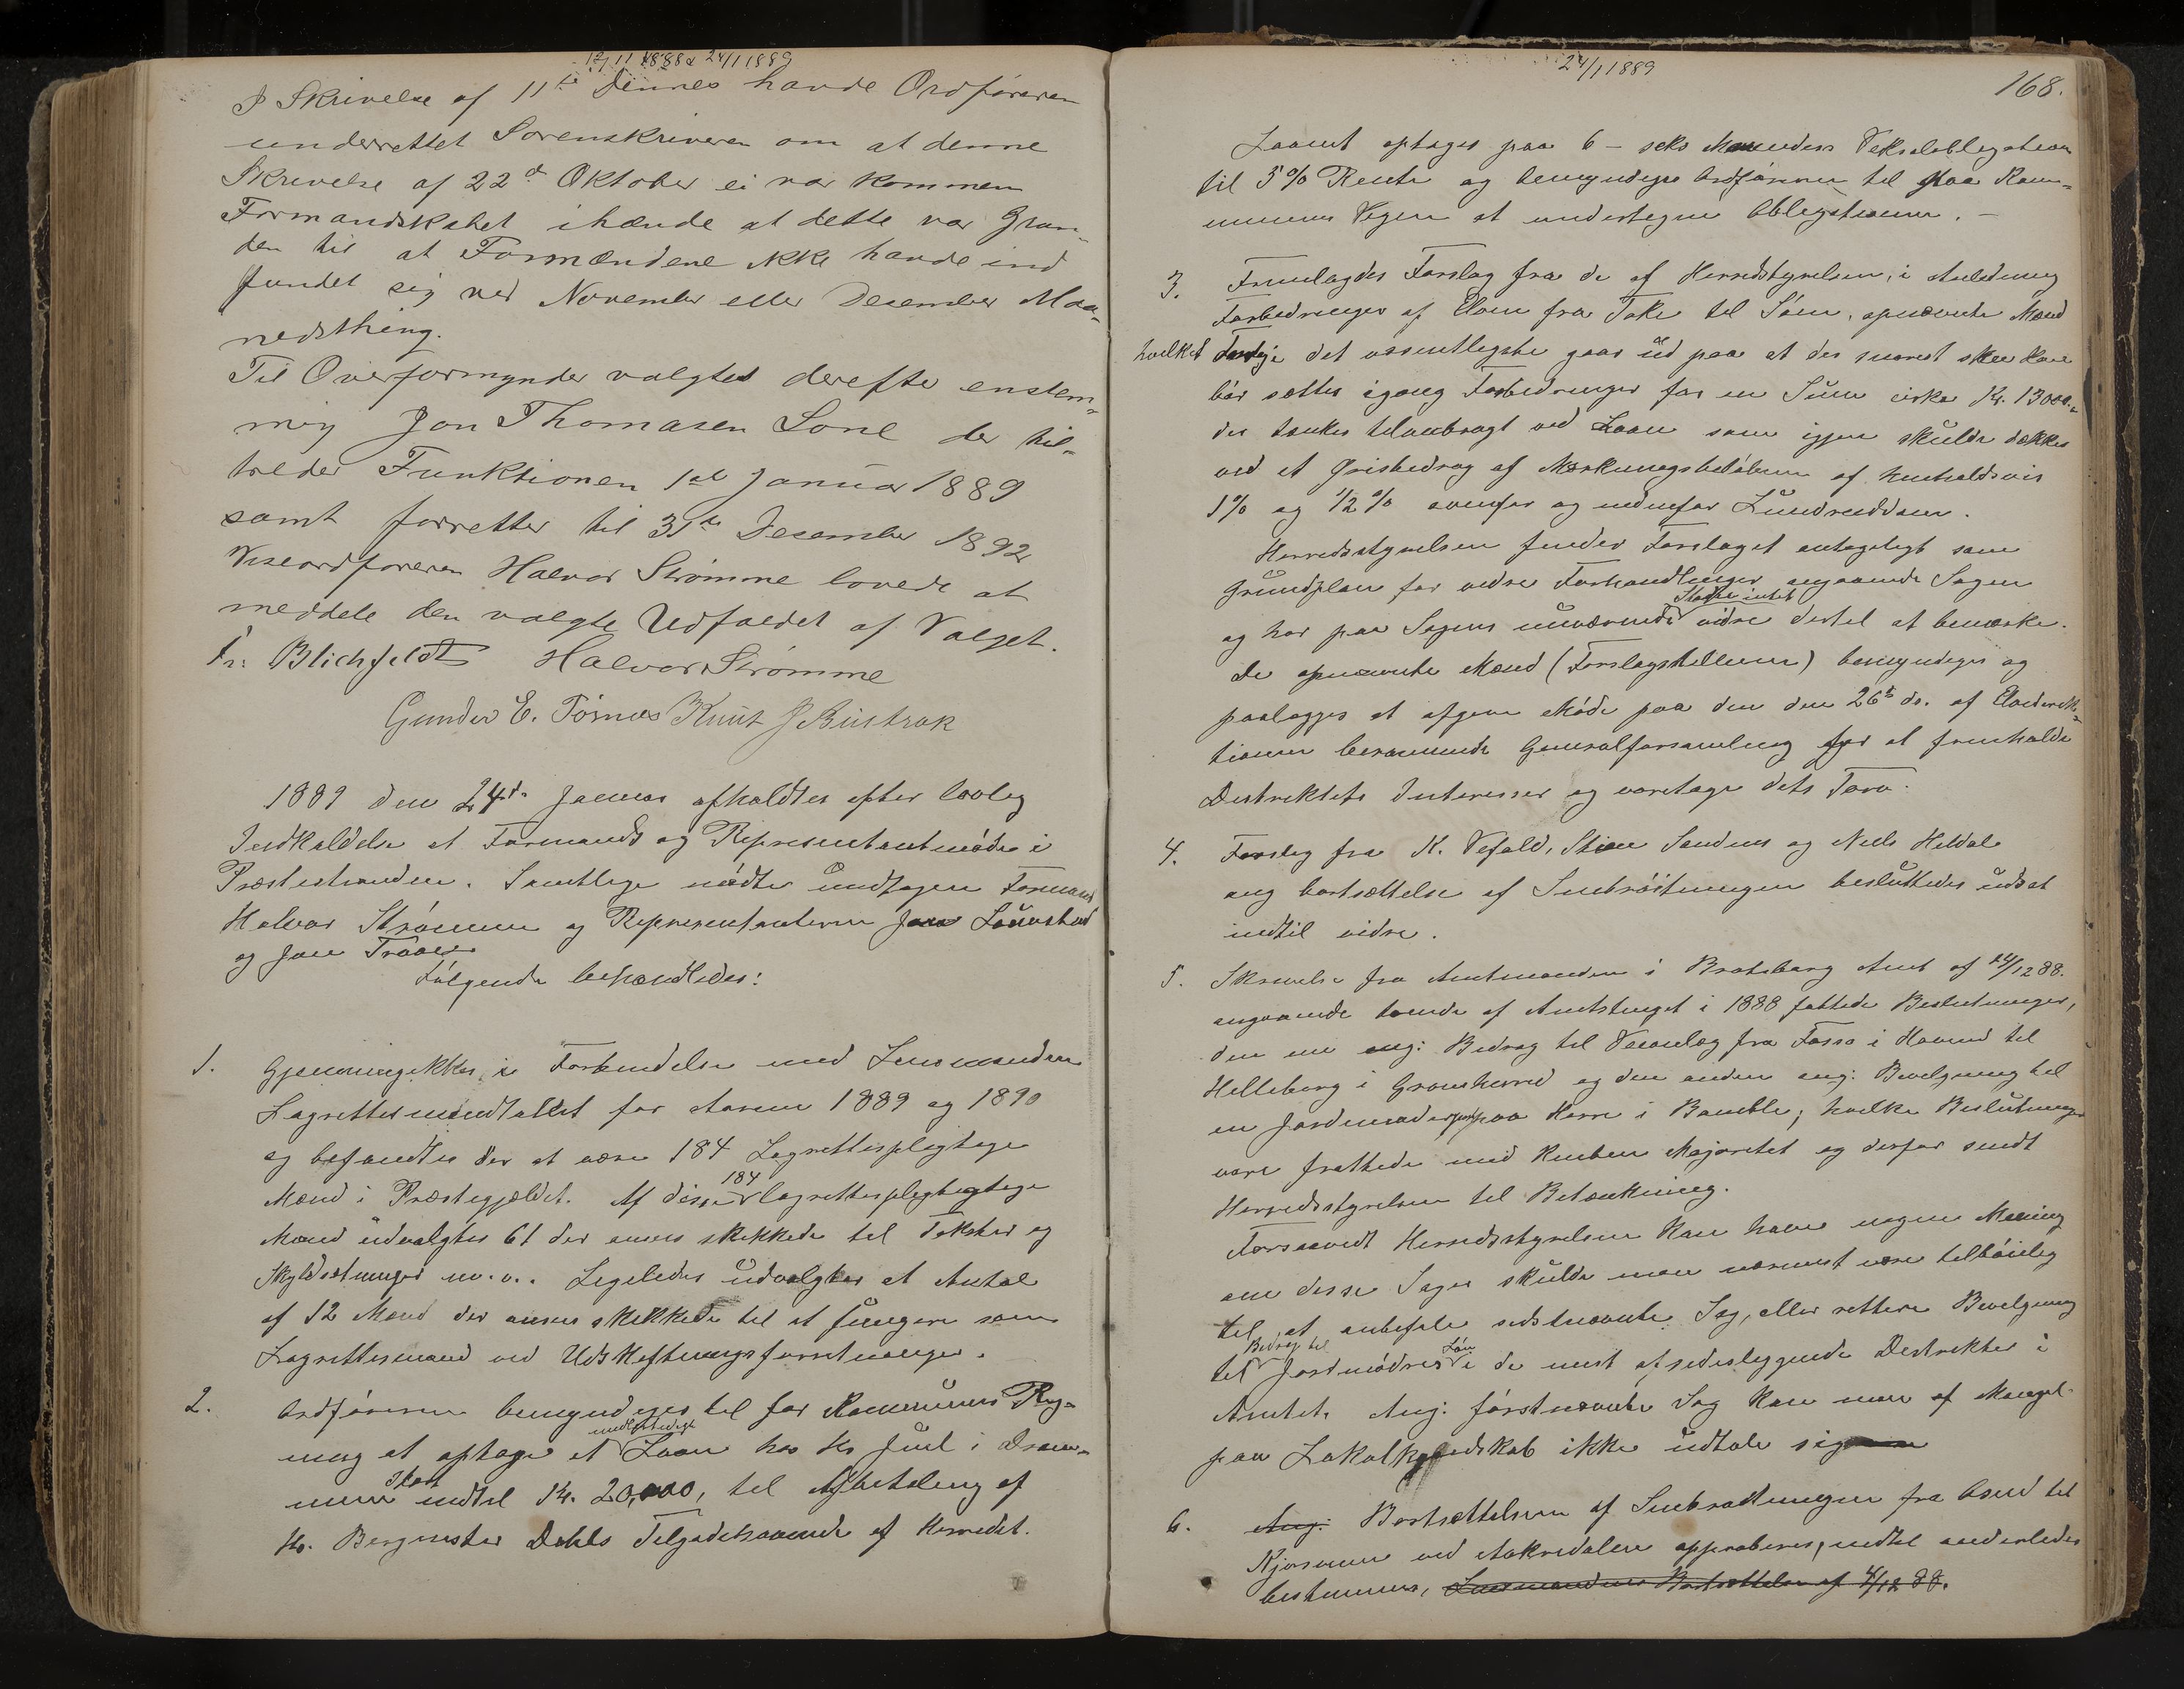 12/11 1888 & 24/1 1889
I Skrivelse af 11te Dennes havde Ordføreren
underrettet Sorenskriveren om at denne
Skrivelse af 22d Oktober ei var kommen
Formandskabet ihænde at dette var Grun-
den til at Formændene ikke havde ind
fundet sig ved November eller Desember Maa-
nedsthing.
Til Overformynder valgtes derefter enstem-
mig Jon Thomasen Sone der til-
træder Funktionen 1st Januar 1889
samt forretter til 31te Desember 1892
Viseordføreren Halvor Strømme lovede at
meddele den valgte Udfaldet af Valget.
Fr: Blichfeldt Halvor Strømme
Gunder E. Tørnes Knut J Bustrak
1889 den 24de Januar afholdtes efter lovlig
Indkaldelse et Formands og Representantmøde i
Præstestranden. Samtlige mødte undtagen Formand
Halvor Strømme og Representanterne Jens Launstad
og Jon Traaen
Følgende behandledes:
1. Gjennemgikkes i Forbindelse med Lensmanden
Lagrettesmandtallet for Aarene 1889 og 1890
og befandtes der at være 184 Lagrettespligtige
Mænd i Præstegjeldet. Af disse 184 lagrettespligtigtige
Mænd udvalgtes 61 der ansees skikkede til Takster og
Skyldsætninger m.v.. Ligeledes udvalgtes et Antal
af 12 Mænd der ansees skikkede til at fungere som
Lagrettesmænd ved Udskiftningsforretninger.
2. Ordføreren bemyndiges til for Kommunens Reg-
ning at optage et midlertidigt Laan hos Hr Juul i Dram-
men stort indtil Kr. 20,000, til Afbetaling af
Hr. Bergmester Dahls Tilgodehavende af Herredet.
24/1 1889
168.
Laanet optages paa 6 - seks Maaneders Vekselobligation
til 5 % Rente og bemyndiges Ordføreren til paa Kom-
munens Vegne at undertegne Obligationen. -
3. Fremlagdes Forslag fra de af Herredstyrelsen, i Anledning
Forbedringer af Elven fra Toke til Søen, opnævnte Mænd
hvilket Forslag i det væsentligste gaar ud paa at der snarest skee kan
bør sættes igang Forbedringer for en Sum cirka Kr. 13000.-
der tænkes tilveiebragt ved Laan som igjen skulde dækkes
ved et Prisbedrag af Mærkningsbeløbene af henholdsvis
1 % og 1/2 % ovenfor og nedenfor Lundereddam.
Herredsstyrelsen finder Forslaget antageligt som
Grundplan for videre Forhandlinger angaaende Sagen
og har paa Sagens nuværende Stadie intet videre dertil at bemærke.
De opnævnte Mænd (Forslagstillerne) bemyndiges og
paalægges at afgive Møde paa den den 26de ds. af Elvedirek-
tionen berammede Generalforsamling for at fremholde
Distriktets Interesser og varetage dets Tarv.
4. Forslag fra K. Vefald, Stian Sandnes og Nils Heldal
ang bortsættelse af Snebrøitningen besluttedes udsat
indtil videre.
5. Skrivelse fra Amtmanden i Bratsberg Amt af 24/12 88.
angaaende tvende af Amtstinget i 1888 fattede Beslutninger,
den ene ang: Bedrag til Veianlæg fra Fosse i Hovind til
Helleberg i Gransherred og den anden ang: Bevilgning til
en Jordemoder paa Herre i Bamble; hvilke Beslutninger
vare frattede med knebene Majoritet og derfor sendt
Herredsstyrelsen til Betænkning.
Forsaavidt Herredsstyrelsen kan have nogen Mening
om disse Sager skulde man nærmest være tilbøielig
til at anbefale sidstnævnte Sag, eller rettere Bevilgning
til Bedrag til Jordmødres Løn i de mest afsidesliggende Distrikter i
Amtet. Ang: førstnævnte Sag kan man af Mangel
paa Lokalkjendskab ikke udtale sig
6. Ang: Bortsættelsen af Snebrøitningen fra Osend til
Kjørsvinn ved Aakredalen approberes, indtil anderledes
bestemmes, Lensmandens Bortsættelse af 4/12 88.